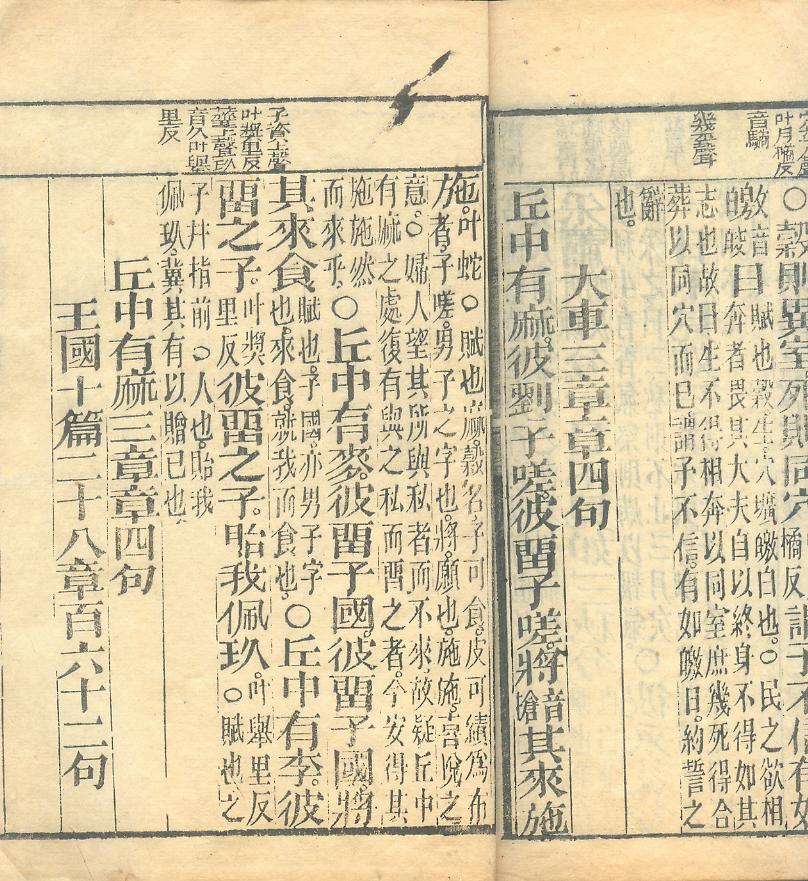 叶戶橘反
幾平聲
○穀則異室死則同穴橘反謂予不信有如
皦音皎日賦也穀生穴壙皦白也。○民之欲相
奔者畏其大夫自以終身不得如其
志也故曰生不得相奔以同室庶幾死得合
葬以同穴而已謂予不信。有如皦日。約誓之
辭
也。
大車三章章四句
丘中有麻。彼劉子嗟。彼畱子嗟。將音槍其來施
叶獎里反
音久叶舉
里反
施。叶蛇○賦也麻。穀名。子可食。皮可績為布
者。子嗟。男子之字也。將。願也。施施。喜悅之
意。○婦人望其所與私者而不來。故疑丘中
有麻之處復有與之私而畱之者。今安得其
施施然
而來乎。○丘中有麥。彼畱子國。彼畱子國。將
其來食。賦也。子國。亦男子字也。來食。就我而食也。○丘中有李。彼
畱之子。叶獎里反彼畱之子。貽我佩玖。叶舉里反○賦也之
子并指前○人也。貽我
佩玖。冀其有以贈己也
丘中有麻三章章四句
王國十篇二十八章百六十二句